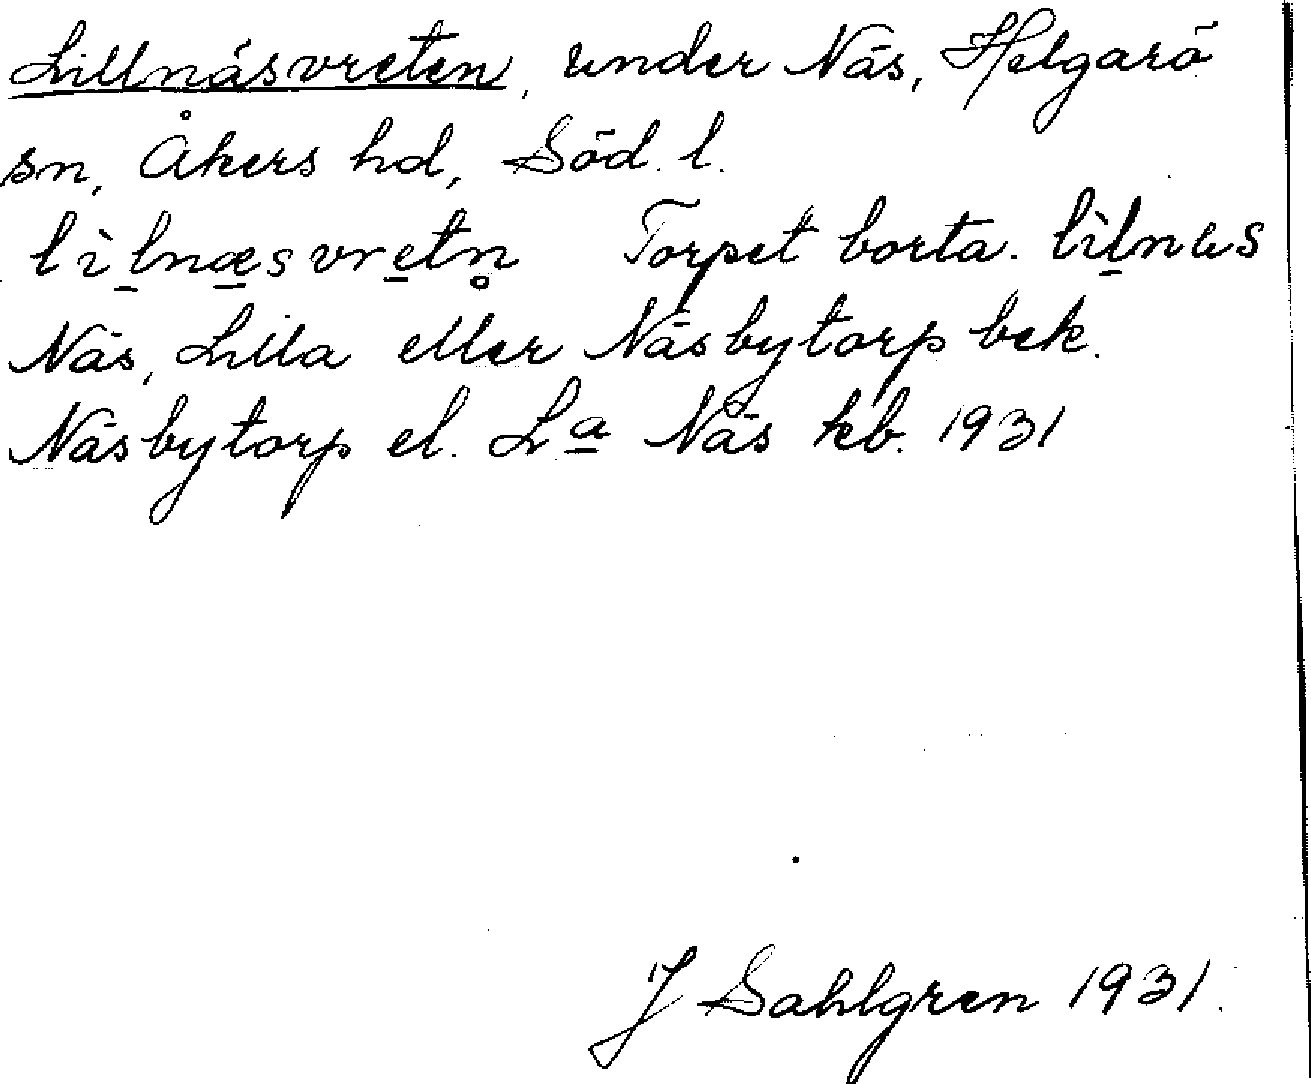 Lillnäsvreten, under Näs, Helgarö
sn, Åkers hd, Söd. l.
lìlnæsvretn̥ Torpet borta. lìlnæs
Näs, Lilla eller Näsbytorp bek.
Näsbytorp el. La Näs kb. 1931
J Sahlgren 1931.